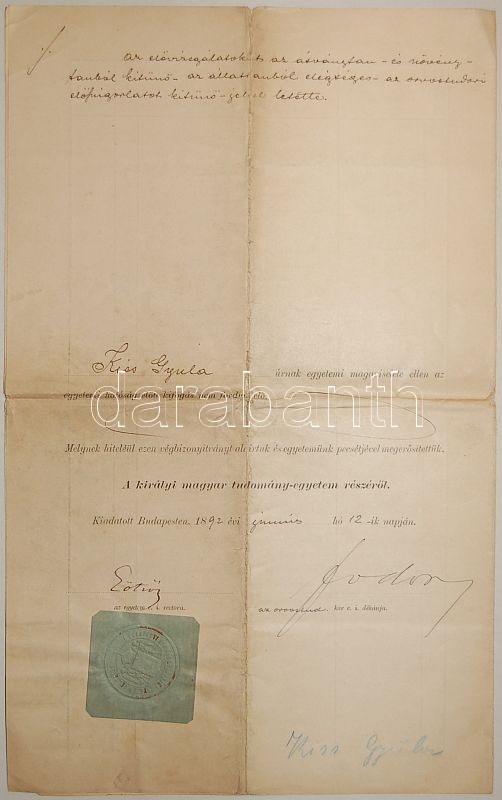 az elővizsgálatokat s az ásványtan- és növény-
tanból kitünő- az állattanból elégséges- az orvostudori
előszigorlatot kitünő- letette.
Kiss Gyula úrnak egyetemi magaviselete ellen az
egyetemi hatóság előtt kifogás nem fordult elő.
darabanth
Melynek hiteléül ezen végbizonyitványt aláirtuk és egyetemünk pecsétjével megerősitettük.
A királyi magyar tudomány-egyetem részéről.
Kiadatott Budapesten, 1892 évi junius hó 12-ik napján.
Eötvös
az egyetem e. i. rectora.
Fodor
az orvostud. kar e. i. dékánja.
Kiss Gyula